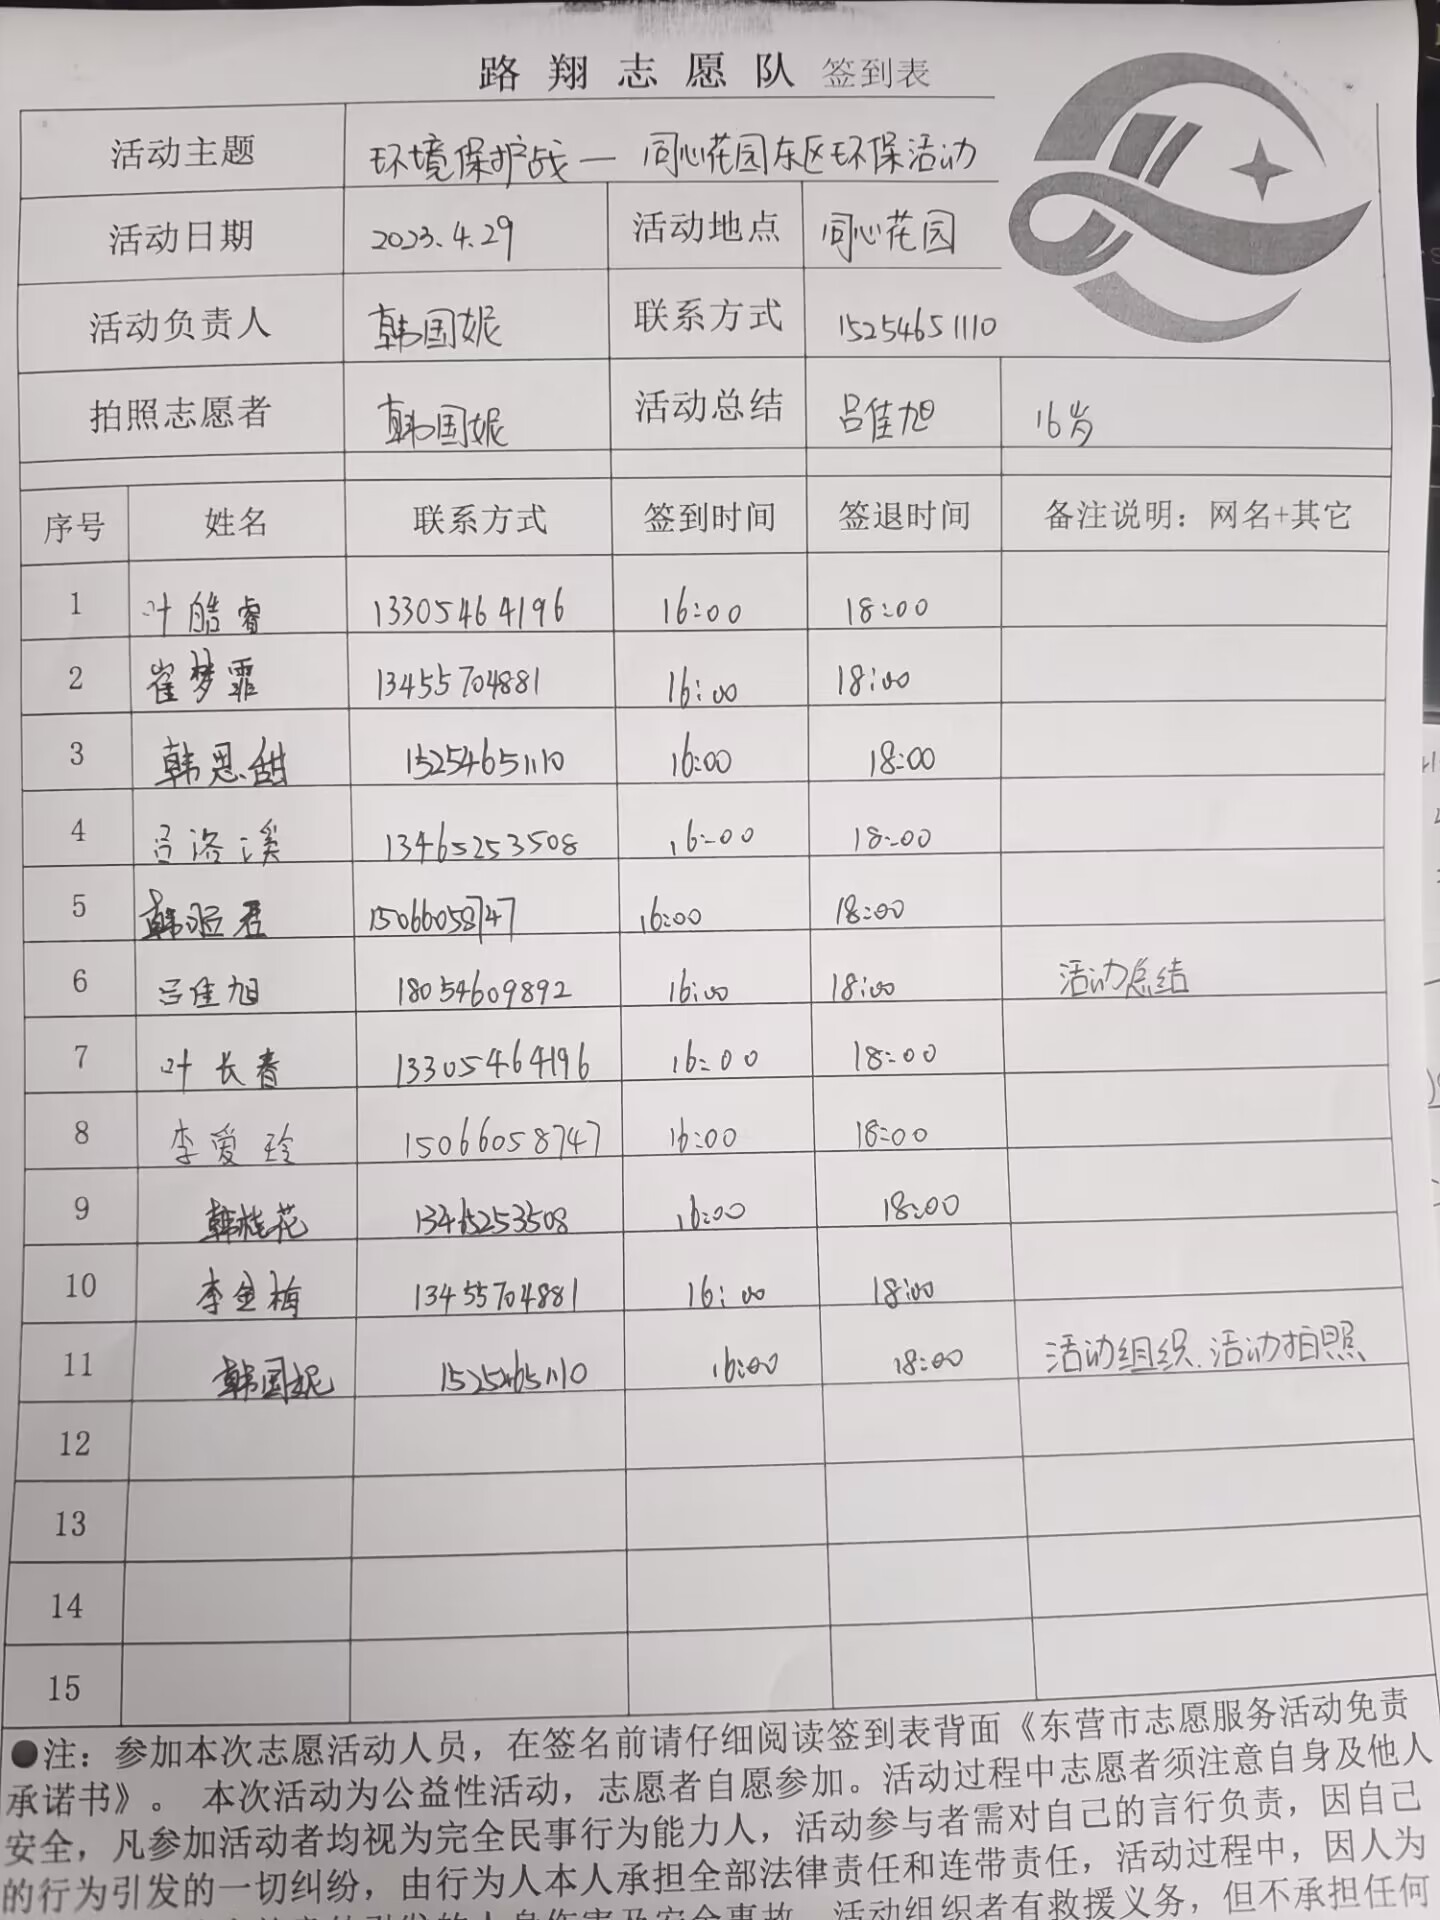 路翔志愿队 签到表
活动主题 环境保护战—同心花园东区环保活动
活动日期 2023.4.29 活动地点 同心花园
活动负责人 韩国妮 联系方式 15254651110
拍照志愿者 韩国妮 活动总结 吕佳旭 16岁
序号 姓名 联系方式 签到时间 签退时间 备注说明：网名+其它
1 叶皓睿 13305464196 16:00 18:00
2 崔梦霏 13455704881 16:00 18:00
3 韩思甜 15254651110 16:00 18:00
4 吕洛溪 13465253508 16:00 18:00
5 韩 君 15066058747 16:00 18:00
6 吕佳旭 18054609892 16:00 18:00 活动总结
7 叶长春 13305464196 16:00 18:00
8 李爱玲 15066058747 16:00 18:00
9 韩桂花 13465253508 16:00 18:00
10 李金梅 13455704881 16:00 18:00
11 韩国妮 15254651110 16:00 18:00 活动组织.活动拍照
12
13
14
15
●注：参加本次志愿活动人员，在签名前请仔细阅读签到表背面《东营市志愿服务活动免责
承诺书》。 本次活动为公益性活动，志愿者自愿参加。活动过程中志愿者须注意自身及他人
安全，凡参加活动者均视为完全民事行为能力人，活动参与者需对自己的言行负责，因自己
的行为引发的一切纠纷，由行为人本人承担全部法律责任和连带责任，活动过程中，因人为
引发的人身伤害及安全事故，活动组织者有救援义务，但不承担任何